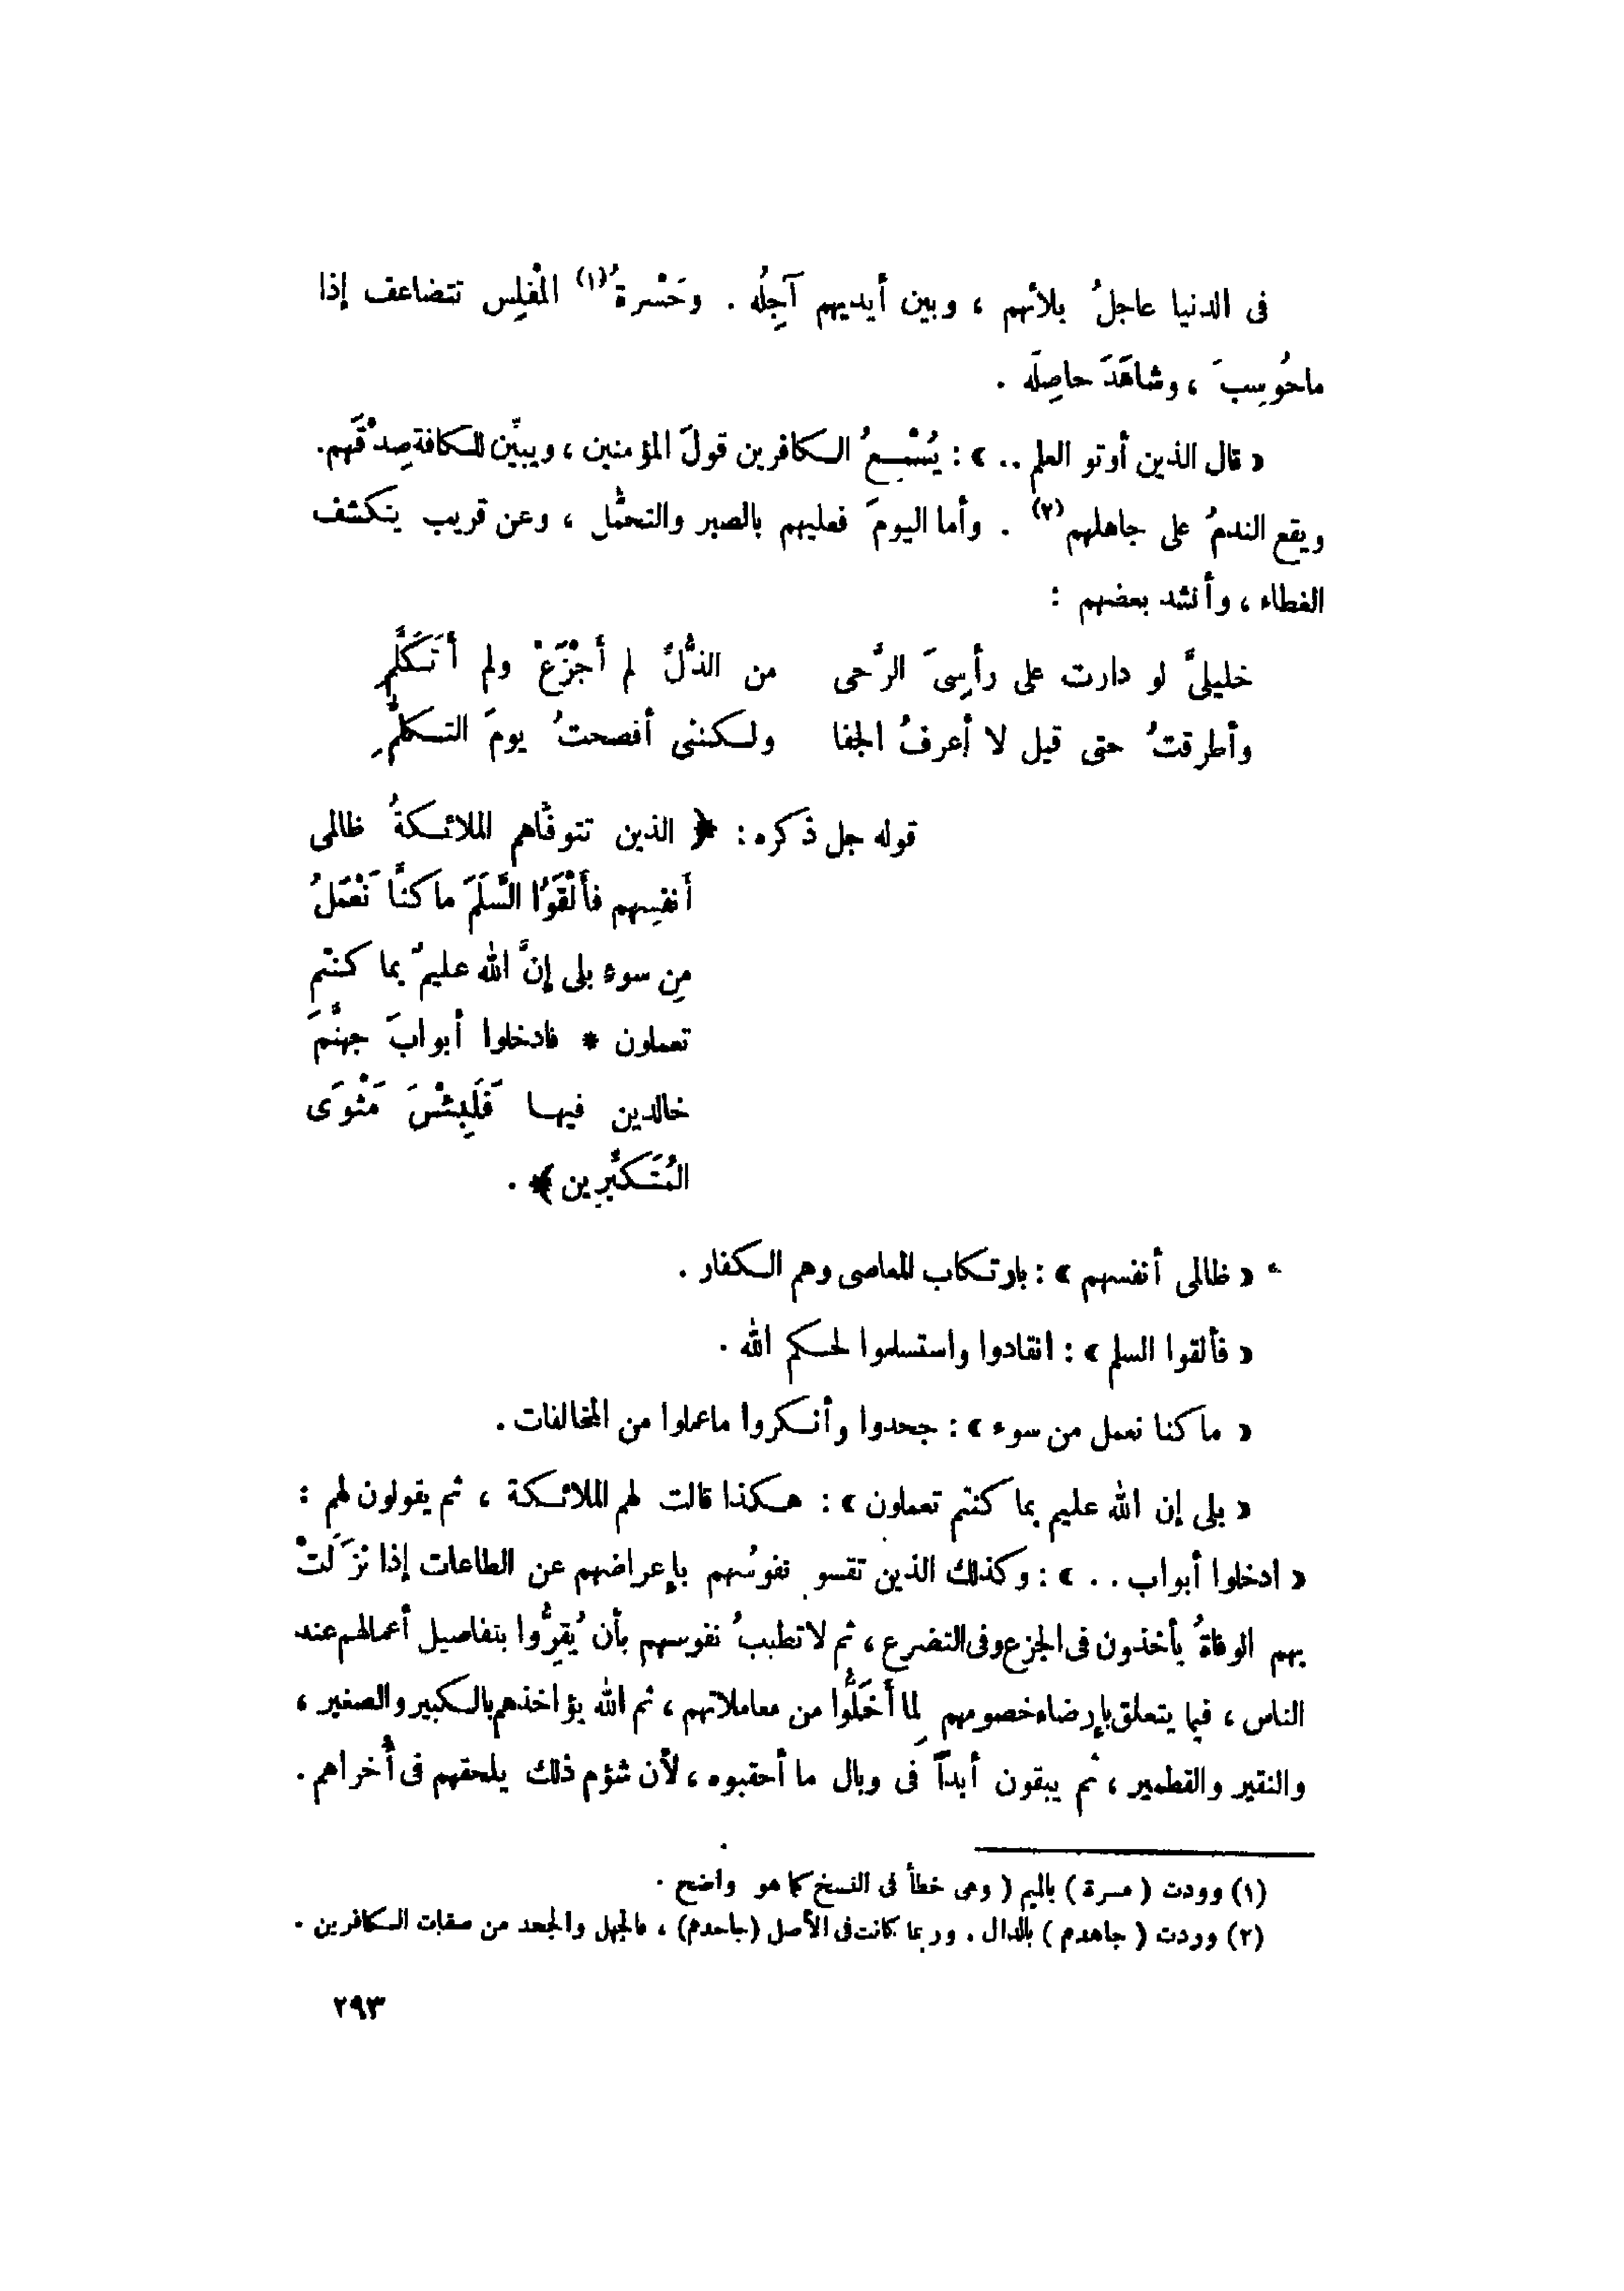 فى الدنيا عاجلُ بلائهم ، وبين أيديهم آجِلُه . وحَسْرةُ(١) المْفلِس تتضاعف إذا
ماحُوسِبَ ، وشاهَدَ حاصِلَه .
« قال الذين أوتو العلم .. » : يُسْمِعُ الكافرين قولَ المؤمنين ، ويبيِّن للكافة صِدْقَهم.
ويقع الندمُ على جاهلهم(٢) . وأما اليومَ فعليهم بالصبر والتحمُّل ، وعن قريب ينكشف
الغطاء ، وأنشد بعضهم :
خليلىَّ لو دارت على رأسِىَ الرَّحى من الذُّلِّ لم أجْزَعْ ولم أتَكَلَّمِ
وأطرقتُ حتى قيل لا أعرفُ الجفا ولكننى أفصحتُ يومَ التكلُّمِ
قوله جل ذكره : ﴿ الذين تتوفَّاهم الملائكةُ ظالمى
أنفسِهم فأَلْقَوُا السَّلَمَ ماكنَّا نَعْمَلُ
مِن سوء بلى إنَّ الله عليمٌ بما كنتم
تعملون * فادخلوا أبوابَ جهنَّمَ
خالدين فيها فَلَبِئْسَ مَثْوَى
المُتَكَبِّرِين ﴾ .
« ظالمى أنفسهم » : بارتكاب المعاصى وهم الكفار .
« فألقوا السلم » : انقادوا واستسلموا لحكم الله .
« ماكنا نعمل من سوء » : جحدوا وأنكروا ماعملوا من المخالفات .
« بلى إن الله عليم بما كنتم تعملون » : هكذا قالت لهم الملائكة ، ثم يقولون لهم :
« ادخلوا أبواب .. » : وكذلك الذين تقسو نفوسُهم بإعراضهم عن الطاعات إذا نَزَلَتْ
بهم الوفاةُ يأخذون فى الجزع وفى التضرع ، ثم لاتطيبُ نفوسهم بأن يُقِرُّوا بتفاصيل أعمالهم عند
الناس ، فيما يتعلق بإرضاء خصومهم لِما أَخَلُّوا من معاملاتهم ، ثم الله يؤاخذهم بالكبير والصغير ،
والنقير والقطمير ، ثم يبقون أبداً فى وبال ما أحقبوه ، لأن شؤم ذلك يلحقهم فى أُخراهم .
(١) وودت ( مسرة ) بالميم ( وهى خطأ فى النسخ كما هو واضح .
(٢) وردت ( جاهدم ) بالدال . وربما كانت فى الأصل (جاحدهم) ، فالجهل والجحد من صفات الكافرين .
٢٩٣